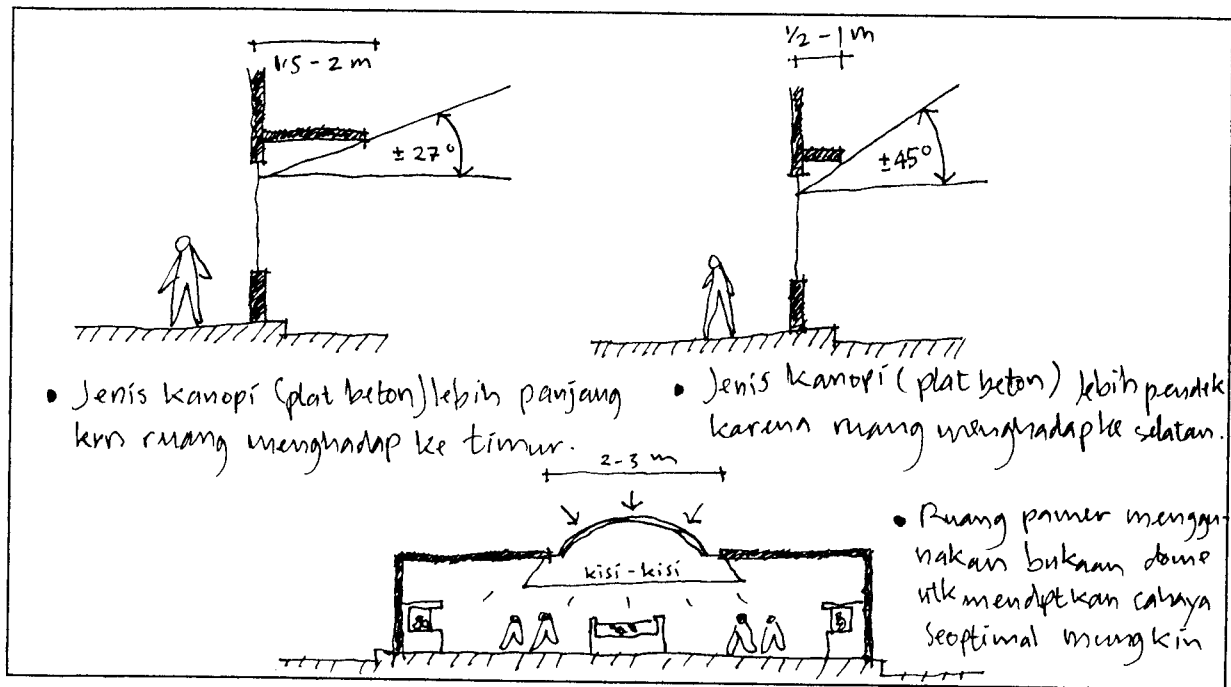 1.5 - 2 m
± 27°
1/2 - 1 m
± 45°
• Jenis kanopi (plat beton) lebih panjang
krn ruang menghadap ke timur.
• Jenis kanopi (plat beton) lebih pendek
karena ruang menghadap ke selatan.
2-3 m
kisi-kisi
• Ruang pamer menggu-
nakan bukaan dome
utk mendptkan cahaya
seoptimal mungkin